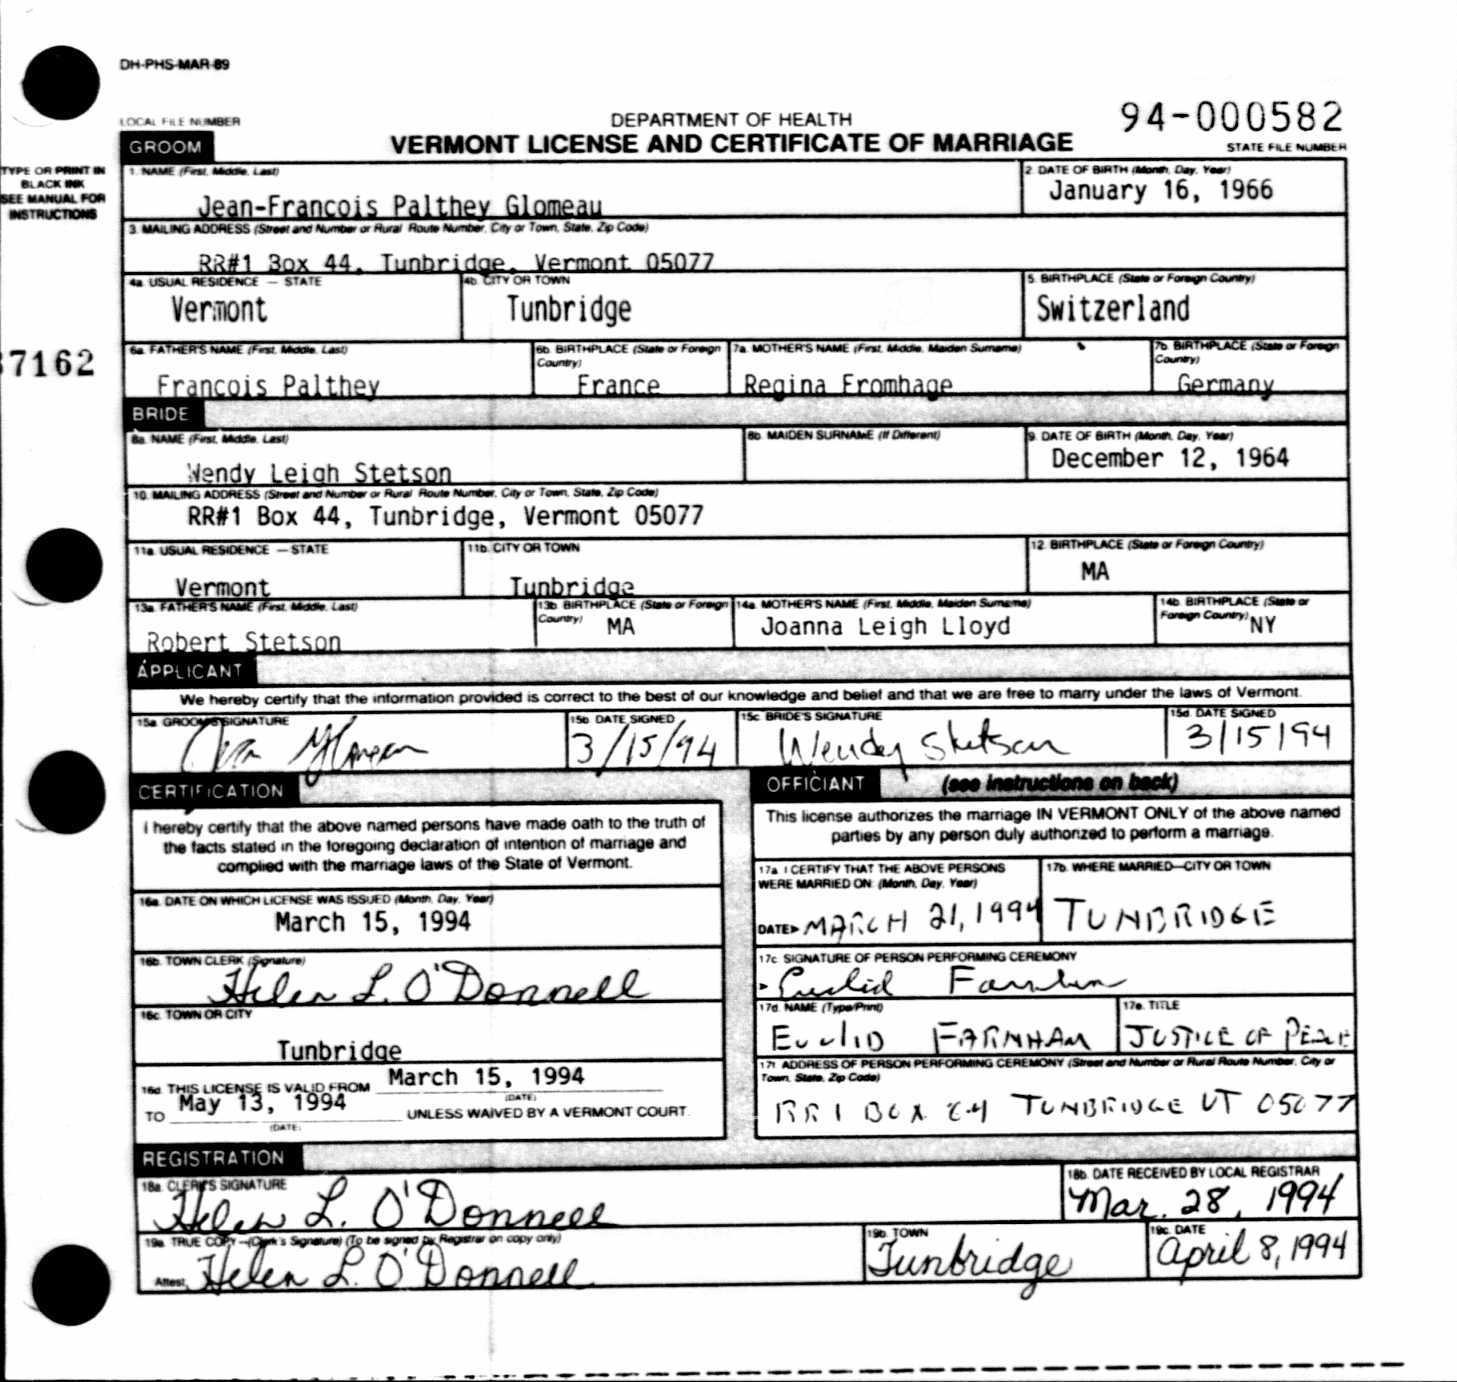 DH-PHS-MAR-89
LOCAL FILE NUMBER
DEPARTMENT OF HEALTH
94-000582
GROOM
VERMONT LICENSE AND CERTIFICATE OF MARRIAGE
STATE FILE NUMBER
TYPE OR PRINT IN
BLACK INK
SEE MANUAL FOR
INSTRUCTIONS
1. NAME (First, Middle, Last)
Jean-Francois Palthey Glomeau
2. DATE OF BIRTH (Month, Day, Year)
January 16, 1966
3. MAILING ADDRESS (Street and Number or Rural Route Number, City or Town, State, Zip Code)
RR#1 Box 44, Tunbridge, Vermont 05077
4a. USUAL RESIDENCE — STATE
Vermont
4b. CITY OR TOWN
Tunbridge
5. BIRTHPLACE (State or Foreign Country)
Switzerland
37162
6a. FATHER'S NAME (First, Middle, Last)
Francois Palthey
6b. BIRTHPLACE (State or Foreign Country)
France
7a. MOTHER'S NAME (First, Middle, Maiden Surname)
Regina Fromhage
7b. BIRTHPLACE (State or Foreign Country)
Germany
BRIDE
8a. NAME (First, Middle, Last)
Wendy Leigh Stetson
8b. MAIDEN SURNAME (If Different)
9. DATE OF BIRTH (Month, Day, Year)
December 12, 1964
10. MAILING ADDRESS (Street and Number or Rural Route Number, City or Town, State, Zip Code)
RR#1 Box 44, Tunbridge, Vermont 05077
11a. USUAL RESIDENCE — STATE
Vermont
11b. CITY OR TOWN
Tunbridge
12. BIRTHPLACE (State or Foreign Country)
MA
13a. FATHER'S NAME (First, Middle, Last)
Robert Stetson
13b. BIRTHPLACE (State or Foreign Country)
MA
14a. MOTHER'S NAME (First, Middle, Maiden Surname)
Joanna Leigh Lloyd
14b. BIRTHPLACE (State or Foreign Country)
NY
APPLICANT
We hereby certify that the information provided is correct to the best of our knowledge and belief and that we are free to marry under the laws of Vermont.
15a. GROOM'S SIGNATURE
15b. DATE SIGNED
3/15/94
15c. BRIDE'S SIGNATURE
Wendy Stetson
15d. DATE SIGNED
3/15/94
CERTIFICATION
I hereby certify that the above named persons have made oath to the truth of
the facts stated in the foregoing declaration of intention of marriage and
complied with the marriage laws of the State of Vermont.
16a. DATE ON WHICH LICENSE WAS ISSUED (Month, Day, Year)
March 15, 1994
16b. TOWN CLERK (Signature)
Helen L. O'Donnell
16c. TOWN OR CITY
Tunbridge
16d. THIS LICENSE IS VALID FROM March 15, 1994
(DATE)
TO May 13, 1994 UNLESS WAIVED BY A VERMONT COURT.
(DATE)
OFFICIANT (see instructions on back)
This license authorizes the marriage IN VERMONT ONLY of the above named
parties by any person duly authorized to perform a marriage.
17a. I CERTIFY THAT THE ABOVE PERSONS
WERE MARRIED ON: (Month, Day, Year)
DATE▸ MARCH 21, 1994
17b. WHERE MARRIED—CITY OR TOWN
TUNBRIDGE
17c. SIGNATURE OF PERSON PERFORMING CEREMONY
▸ Euclid Farnham
17d. NAME (Type/Print)
EUCLID FARNHAM
17e. TITLE
JUSTICE OF PEACE
17f. ADDRESS OF PERSON PERFORMING CEREMONY (Street and Number or Rural Route Number, City or
Town, State, Zip Code)
RR 1 BOX 24 TUNBRIDGE VT 05077
REGISTRATION
18a. CLERK'S SIGNATURE
Helen L. O'Donnell
18b. DATE RECEIVED BY LOCAL REGISTRAR
Mar. 28, 1994
19a. TRUE COPY—(Clerk's Signature) (To be signed by Registrar on copy only)
Attest, Helen L. O'Donnell
19b. TOWN
Tunbridge
19c. DATE
April 8, 1994